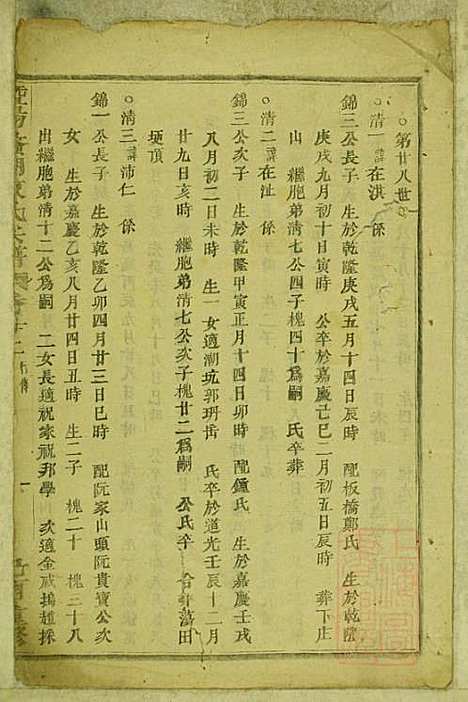 ○第廿八世
○清一 諱在淇 係
錦三公長子 生於乾隆庚戌五月十四日辰時 配板橋鄭氏 生於乾隆
庚戌九月初十日寅時 公卒於嘉慶己巳二月初五日辰時 葬下庄
山 繼胞弟清七公四子槐四十爲嗣 氏卒葬
○清二 諱在沚 係
錦三公次子 生於乾隆甲寅正月十四日卯時 配鍾氏 生於嘉慶壬戌
八月初二日未時 生一女適潮坑郭玥岳 氏卒於道光壬辰十二月
廿九日亥時 繼胞弟清七公次子槐廿二爲嗣 公氏卒 合葬蕩田
埂頂
○清三 諱沛仁 係
錦一公長子 生於乾隆乙卯四月廿三日巳時 配阮家山頭阮貴寶公次
女 生於嘉慶乙亥八月廿四日丑時 生二子 槐二十 槐三十八
出繼胞弟清十二公爲嗣 二女長適祝家祝邦學 次適金